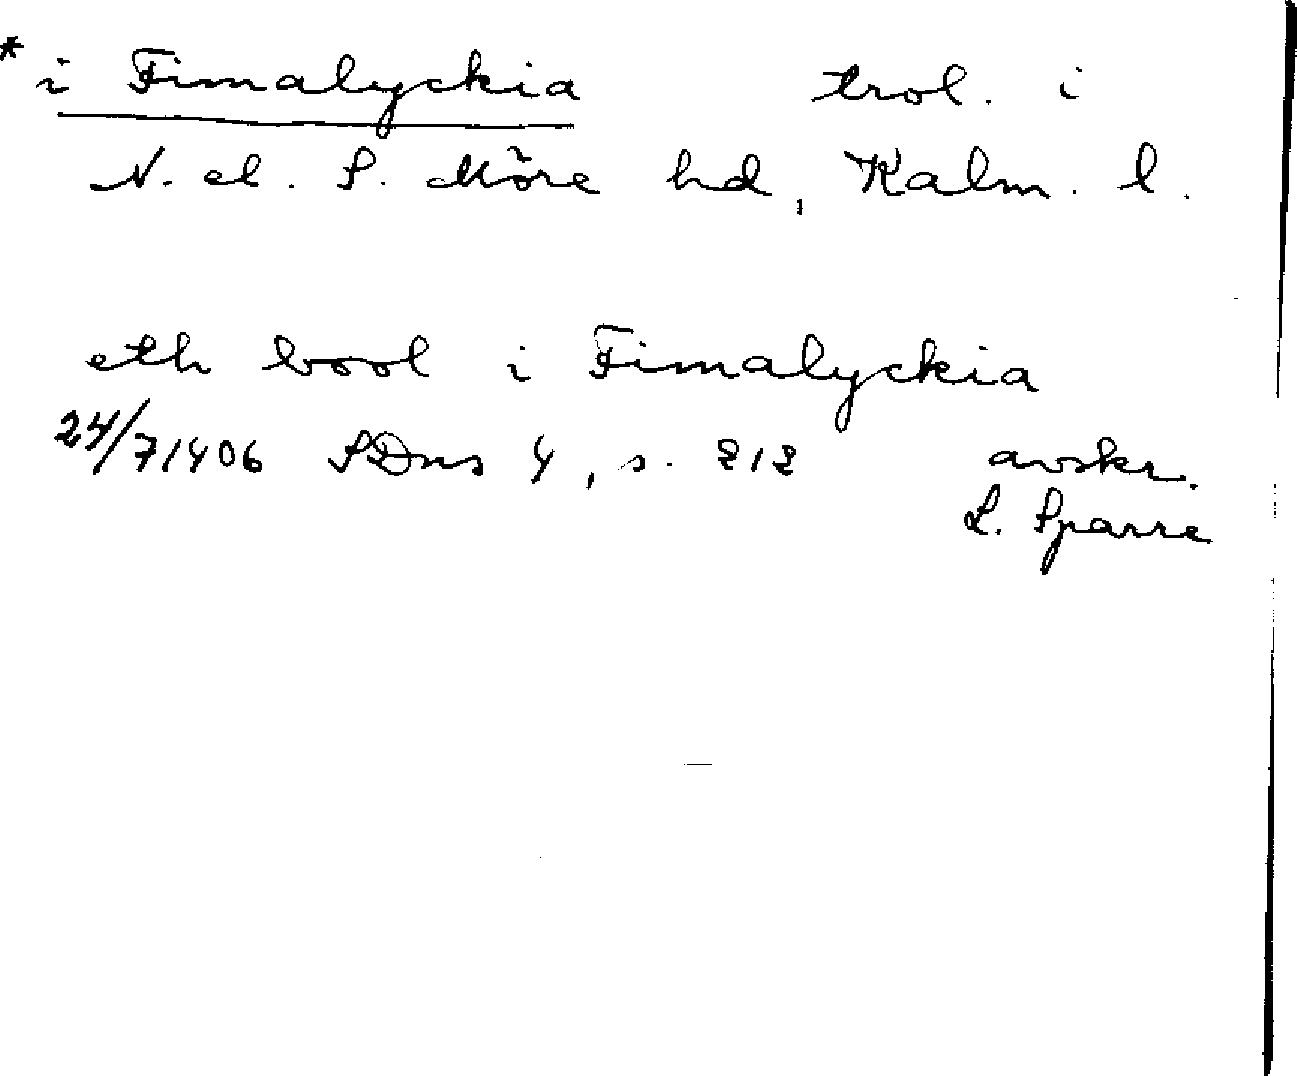 * i Fimalyckia trol. i
N. el. S. Möre hd, Kalm. l.
eth bool i Fimalyckia
24/7 1406 SDns 4, s. 212 avskr.
L. Sparre